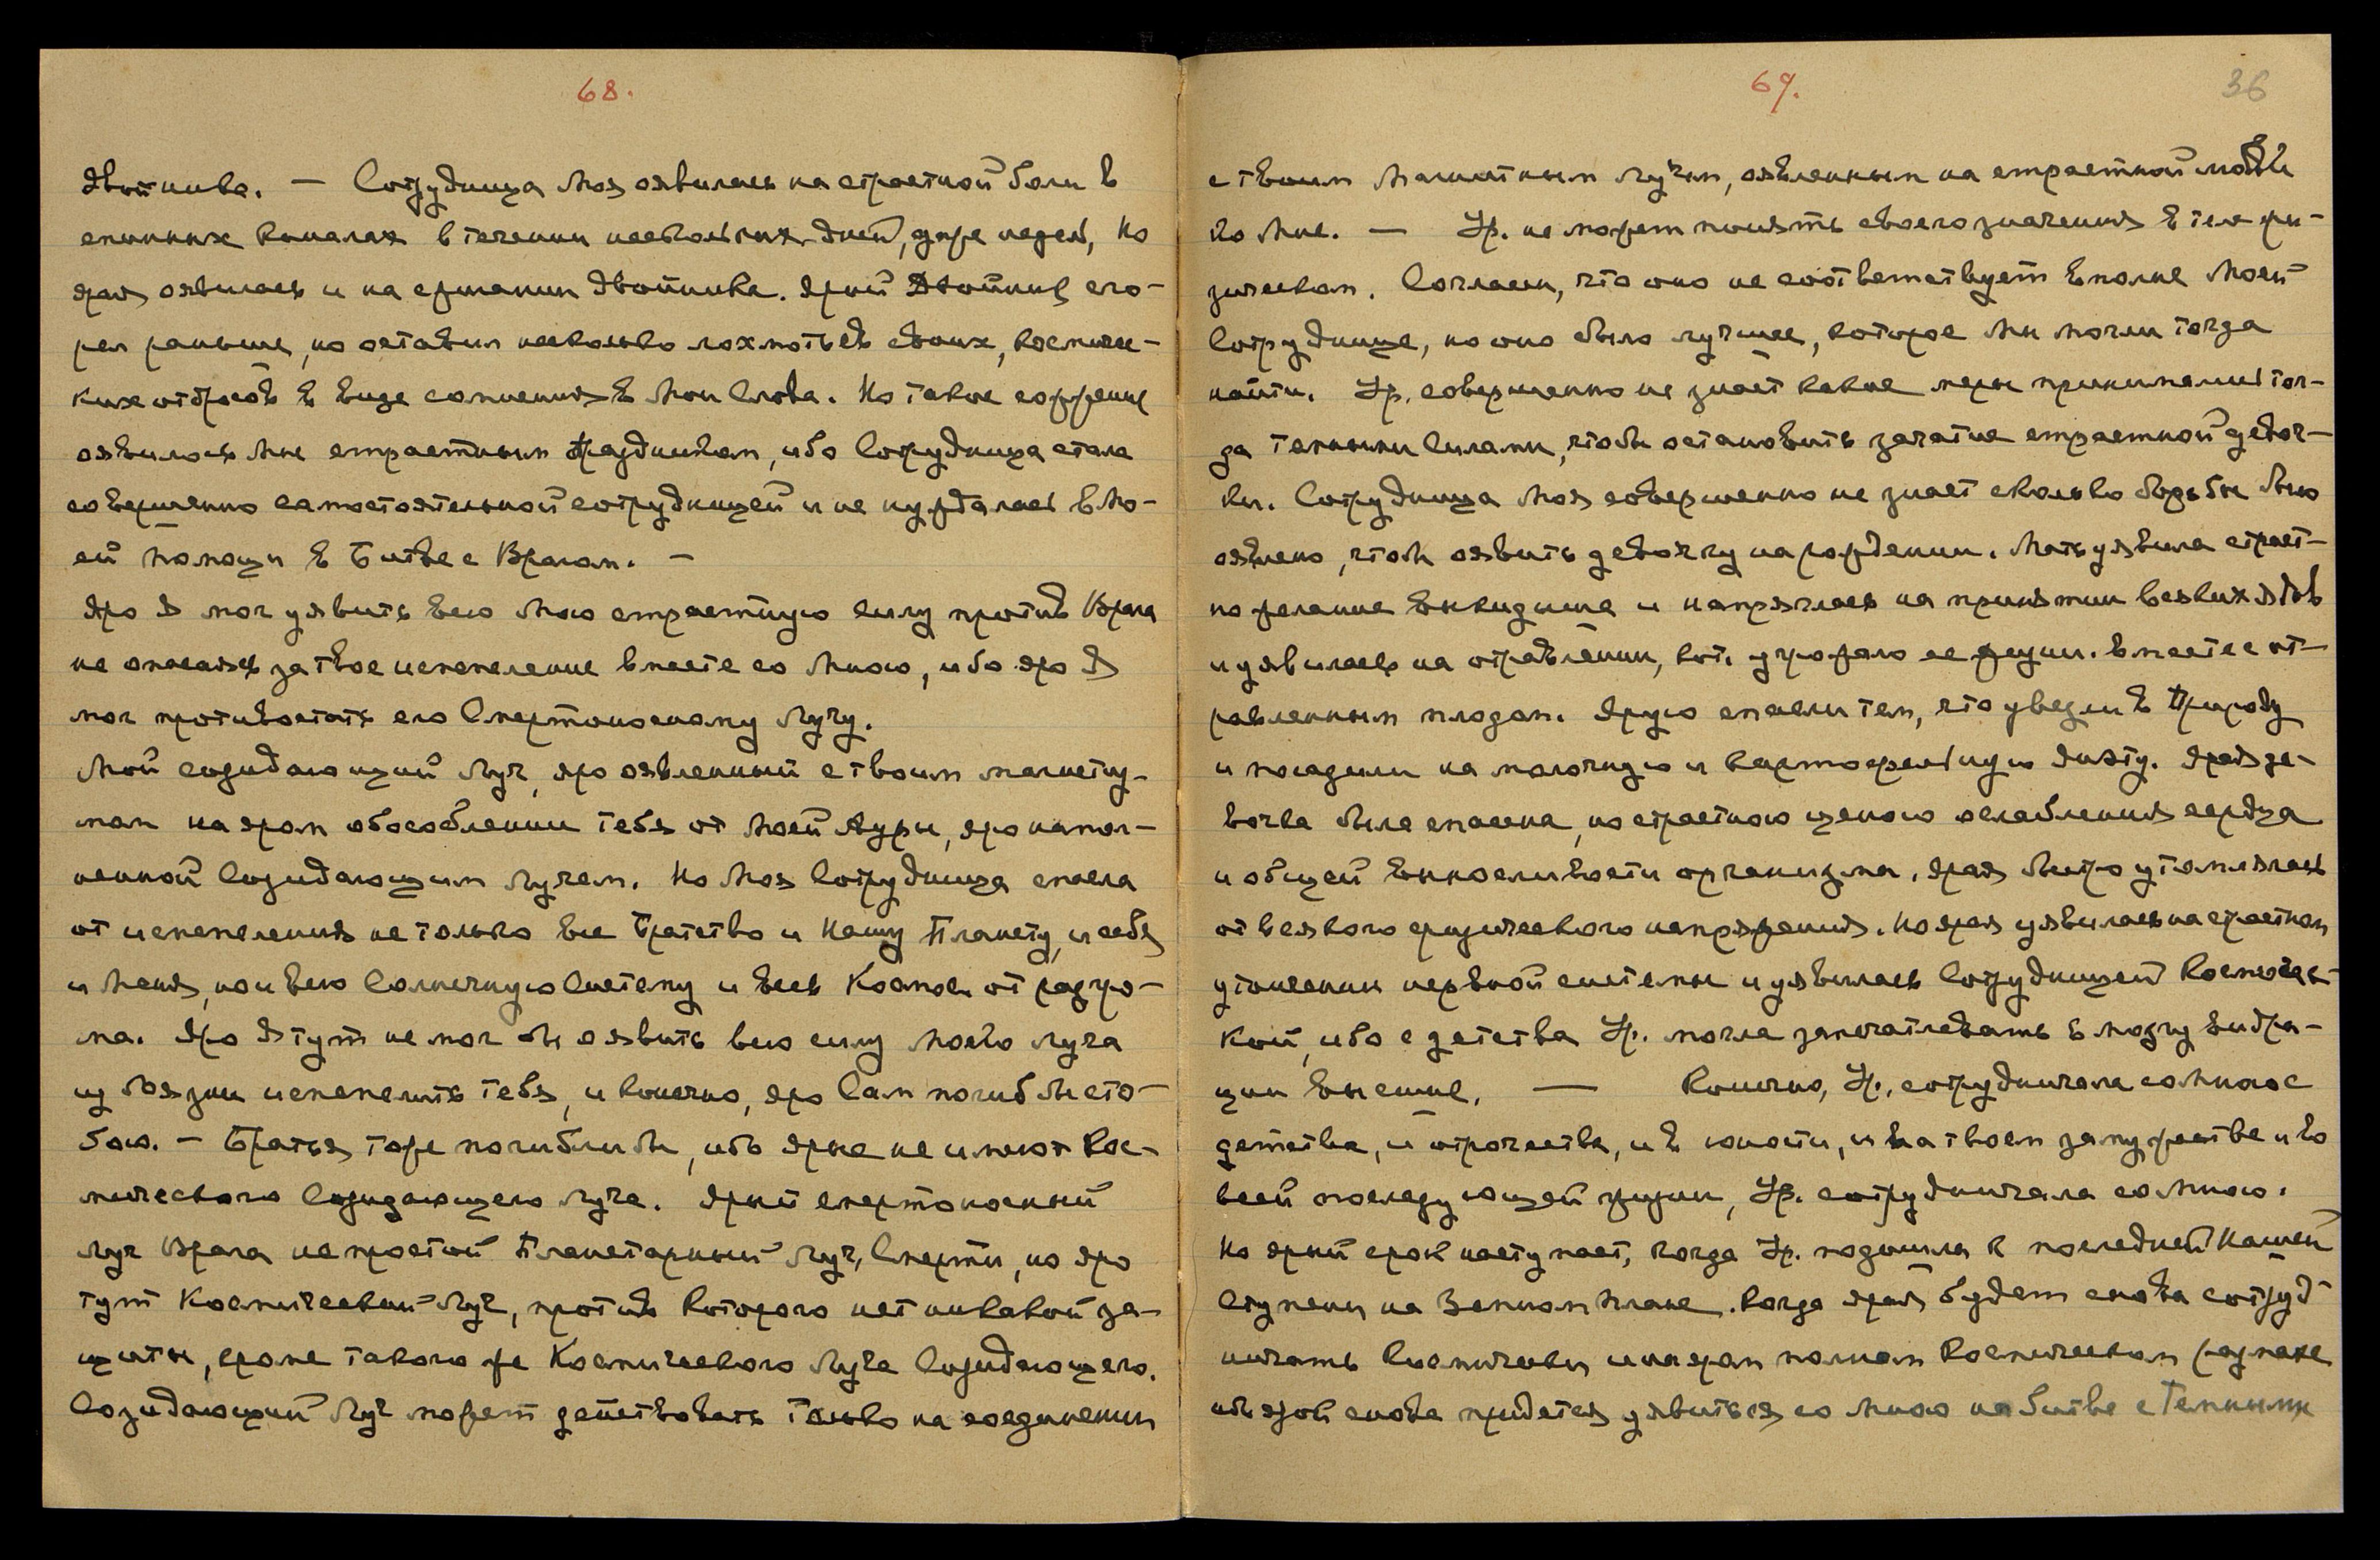 68.
двойника. — Сотрудница Моя оявилась на страстной боли в
спинных каналах в течении нескольких дней, даже недель, но
ярая оявилась и на сжигании двойника. Ярый Двойник сго-
рел раньше, но оставил несколько лохмотьев своих, космичес-
ких отбросов в виде сомнения в Мои Слова. Но такое сожжение
оявилось Мне страстным праздником, ибо Сотрудница стала
совершенно самостоятельной сотрудницей и не нуждалась в Мо-
ей помощи в Битве с Врагом. —
Яро Я мог уявить всю Мою страстную силу против Врага
не опасаясь за твое испепеление вместе со Мною, ибо яро Я
мог противостать его Смертоносному Лучу.
Мой созидающий Луч, яро оявленный с твоим магнетиз-
мом на яром обособлении тебя от Моей Ауры, яро напол-
ненной Созидающим Лучем. Но Моя Сотрудница спасла
от испепеления не только все Братство и Нашу Планету, и себя
и Меня, но и всю Солнечную Систему и весь Космос от разгро-
ма. Яро Я тут не мог бы оявить всю силу Моего Луча
из боязни испепелить тебя, и конечно, яро Сам погиб бы с то-
бою. — Братья тоже погибли бы, ибо ярые не имеют Кос-
мического Созидающего Луча. Ярый смертоносный
Луч Врага не простой Планетарный Луч, Смерти, но яро
тут Космический Луч, против которого нет никакой за-
щиты, кроме такого же Космического Луча Созидающего.
Созидающий Луч может действовать только на соединении
69.
36
с твоим Магнитным Лучом, оявленным на страстной любви
ко Мне. — Ур. не может понять своего значения в теле фи-
зическом. Согласен, что оно не соответствует вполне Моей
Сотруднице, но оно было лучшее, которое Мы могли тогда
найти. Ур. совершенно не знает какие меры принимались тог-
да темными силами, чтобы остановить зачатие страстной девоч-
ки. Сотрудница Моя совершенно не знает сколько борьбы было
оявлено, чтобы оявить девочку на рождении. Мать уявила страст-
но желание выкидыша и напряглась на принятии всяких ядов
и уявилась на отравлении, кот. угрожало ее жизни. вместе с от-
равленным плодом. Ярую спасли тем, что увезли в Природу
и посадили на молочную и картофельную диэту. Ярая де-
вочка была спасена, но страстною ценою ослабления сердца
и общей выносливости организма. ярая быстро утомлялась
от всякого физического напряжения. Но ярая уявилась на страстном
утончении нервной системы и уявилась Сотрудницей Космичес-
кой, ибо с детства Ур. могла запечатлевать в мозгу вибра-
ции высшие. — Конечно, Ур. сотрудничала со Мною с
детства, и отрочества, и в юности, и на твоем замужестве и во
всей последующей жизни, Ур. сотрудничала со Мною.
Но ярый срок наступает, когда Ур. подошла к последней Нашей
Ступени на Земном плане. Когда ярая будет снова сотруд-
ничать Космически и на яром полном космическом размахе
ибо ярой снова придется уявиться со Мною на битве с Темными